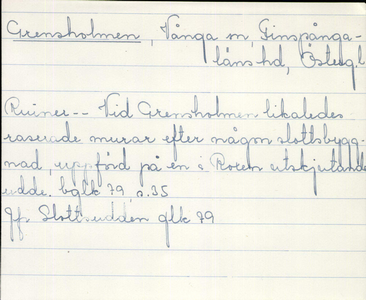 Grensholmen, Vånga sn, Finspånga-
läns hd, Östergl
Ruiner -- Vid Grensholmen likaledes
raserade murar efter någon slottsbygg-
nad, uppförd på en i Roxen utskjutande
udde. bglk 79, s. 35
Jf. Slottsudden glk 79